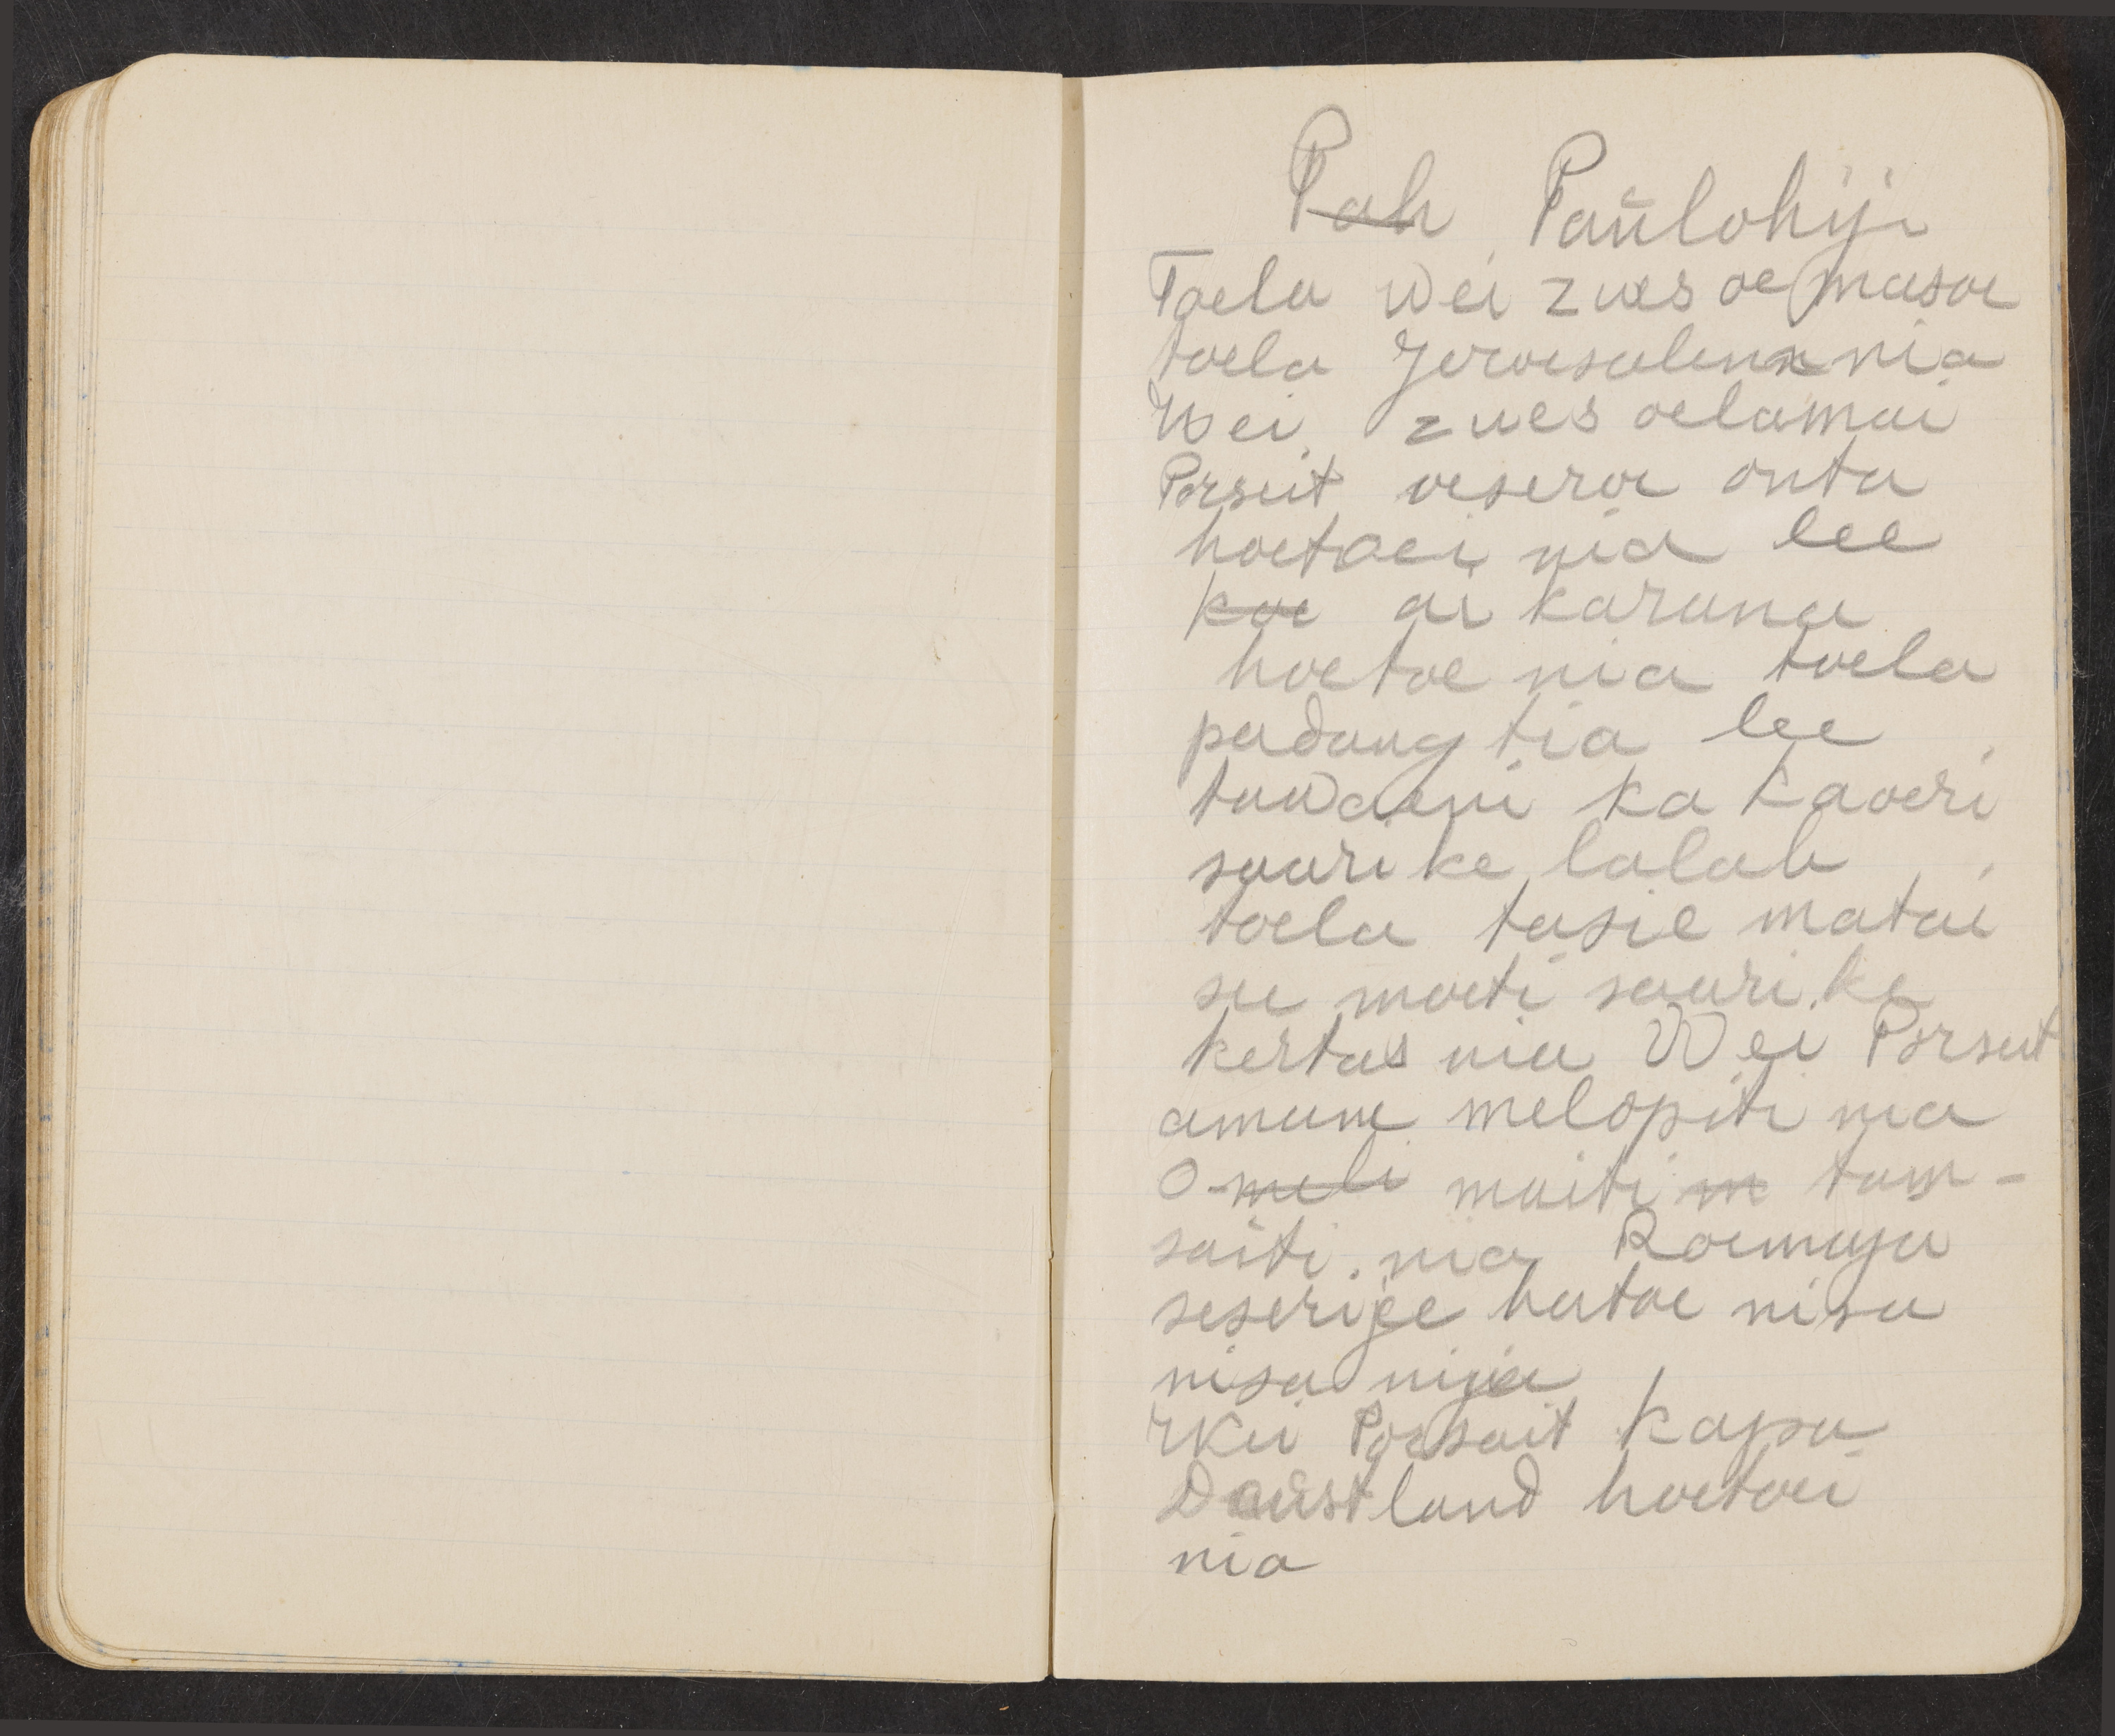 Pah Paŭlohiji
Toela Wei zues oe masoe
toela Jeroesalem nia
Wei zues oelamai
Porsuit oeseroe onta
hoetoei nia lee
koe ai karana
hoetoe nia toela
padang tia lee
tuwaeni ka kaoeri
saari ke lalah
toela tasie matai
su moeti saari ke
kertas nia Wei Porsuit
amane melopiti nia
O meli maiti m tam-
saiti nia Roemaja
seserije hatoe nisa
nisa nija
Kei Porsait kapa
Daustland hoetoei
nia